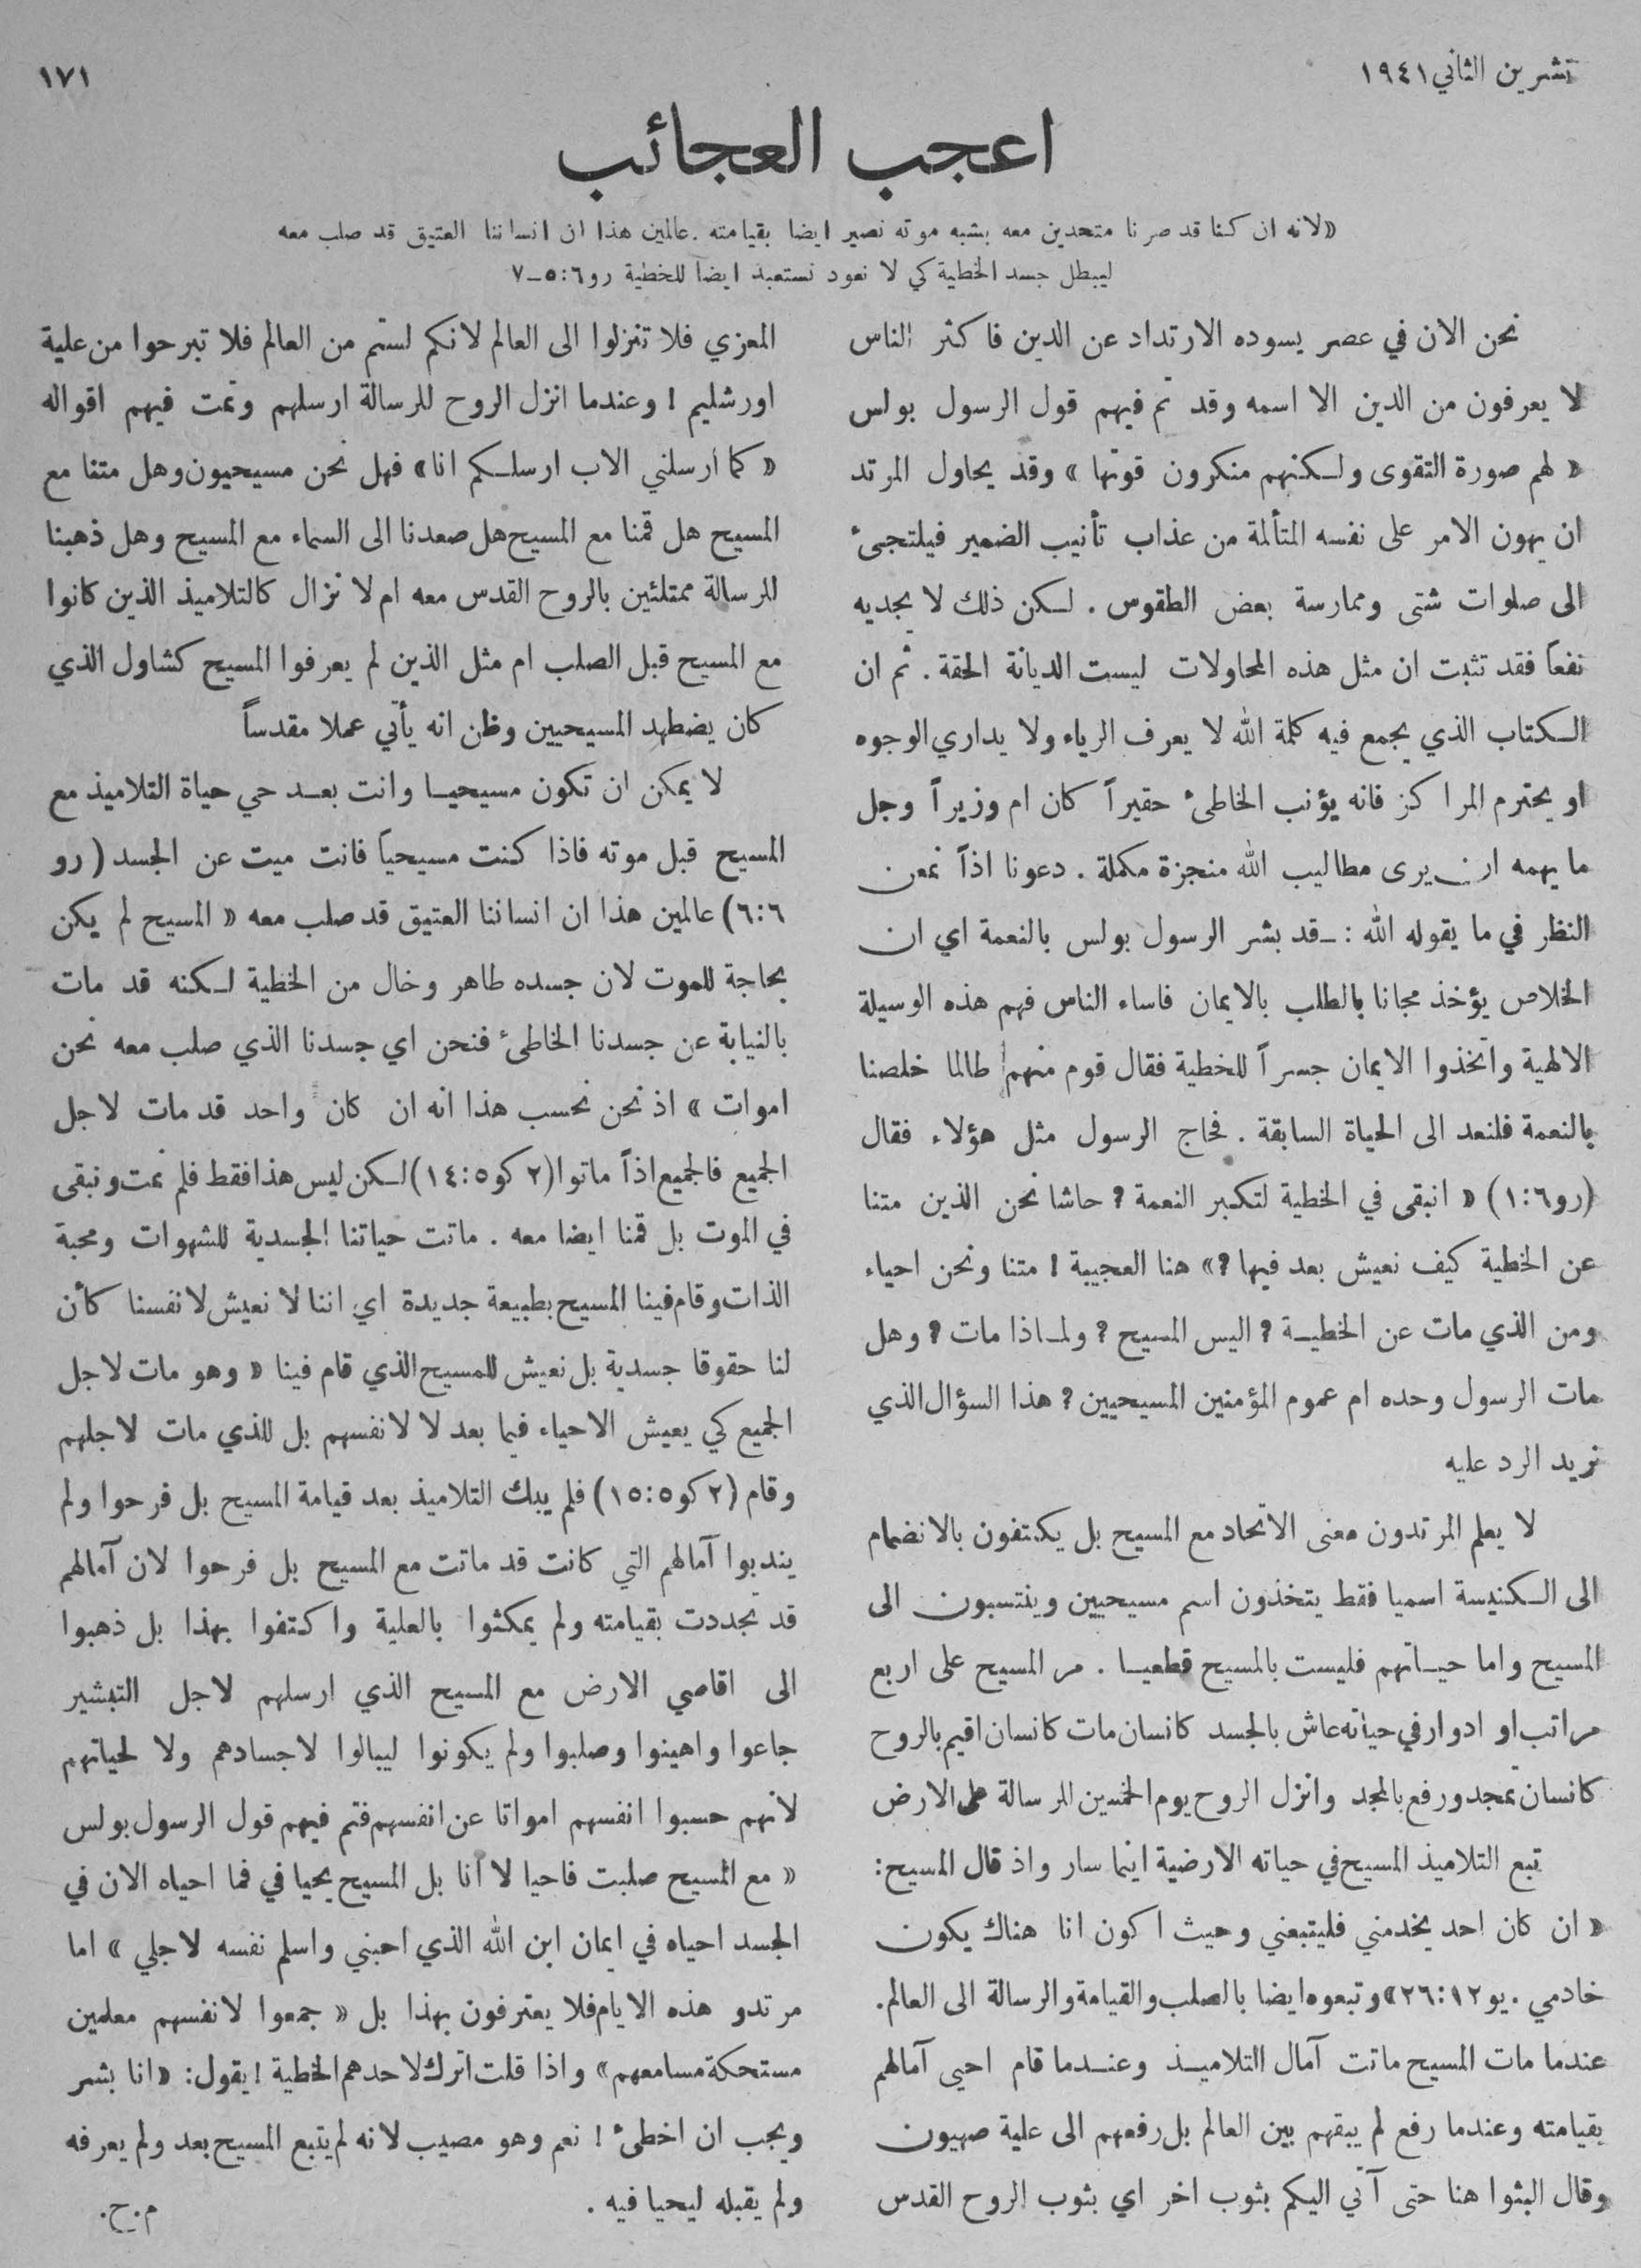 تشرين الثاني ١٩٤١
١٧١
اعجب العجائب
«لانه ان كنا قد صرنا متحدين معه بشبه موته نصير ايضا بقيامته . عالمين هذا ان انساننا العتيق قد صلب معه
ليبطل جسد الخطية كي لا نعود نستعبد ايضاً للخطية رو٦:٥-٧
نحن الان في عصر يسوده الارتداد عن الدين فاكثر الناس
لا يعرفون من الدين الا اسمه وقد تم فيهم قول الرسول بولس
« لهم صورة التقوى ولكنهم منكرون قوتها » وقد يحاول المرتد
ان يهون الامر على نفسه المتألمة من عذاب تأنيب الضمير فيلتجئ
الى صلوات شتى وممارسة بعض الطقوس . لكن ذلك لا يجديه
نفعاً فقد تثبت ان مثل هذه المحاولات ليست الديانة الحقة . ثم ان
الكتاب الذي يجمع فيه كلمة الله لا يعرف الرياء ولا يداري الوجوه
او يحترم المراكز فانه يؤنب الخاطئ حقيراً كان ام وزيراً وجل
ما يهمه ان يرى مطاليب الله منجزة مكملة . دعونا اذاً نمعن
النظر في ما يقوله الله :- قد بشر الرسول بولس بالنعمة اي ان
الخلاص يؤخذ مجانا بالطلب بالايمان فاساء الناس فهم هذه الوسيلة
الالهية واتخذوا الايمان جسراً للخطية فقال قوم منهم طالما خلصنا
بالنعمة فلنعد الى الحياة السابقة . فحاج الرسول مثل هؤلاء فقال
(رو٦:١) « انبقى في الخطية لتكبر النعمة ? حاشا نحن الذين متنا
عن الخطية كيف نعيش بعد فيها ?» هنا العجيبة ! متنا ونحن احياء
ومن الذي مات عن الخطية ? اليس المسيح ? ولماذا مات ? وهل
مات الرسول وحده ام عموم المؤمنين المسيحيين ? هذا السؤال الذي
نريد الرد عليه
لا يعلم المرتدون معنى الاتحاد مع المسيح بل يكتفون بالانضمام
الى الكنيسة اسميا فقط يتخذون اسم مسيحيين وينتسبون الى
المسيح واما حياتهم فليست بالمسيح قطعيا . مر المسيح على اربع
مراتب او ادوار في حياته عاش بالجسد كانسان مات كانسان اقيم بالروح
كانسان تمجد ورفع بالمجد وانزل الروح يوم الخمسين للرسالة على الارض
تبع التلاميذ المسيح في حياته الارضية اينما سار واذ قال المسيح:
« ان كان احد يخدمني فليتبعني وحيث اكون انا هناك يكون
خادمي . يو٢٦:١٢» وتبعوه ايضا بالصلب والقيامة والرسالة الى العالم.
عندما مات المسيح ماتت آمال التلاميذ وعندما قام احيى آمالهم
بقيامته وعندما رفع لم يبقهم بين العالم بل رفعهم الى علية صهيون
وقال البثوا هنا حتى آتي اليكم بثوب اخر اي بثوب الروح القدس
المعزي فلا تنزلوا الى العالم لانكم لستم من العالم فلا تبرحوا من علية
اورشليم ! وعندما انزل الروح للرسالة ارسلهم وتمت فيهم اقواله
« كما ارسلني الاب ارسلكم انا » فهل نحن مسيحيون وهل متنا مع
المسيح هل قمنا مع المسيح هل صعدنا الى السماء مع المسيح وهل ذهبنا
للرسالة ممتلئين بالروح القدس معه ام لا نزال كالتلاميذ الذين كانوا
مع المسيح قبل الصلب ام مثل الذين لم يعرفوا المسيح كشاول الذي
كان يضطهد المسيحيين وظن انه يأتي عملا مقدساً
لا يمكن ان تكون مسيحيا وانت بعد حي حياة التلاميذ مع
المسيح قبل موته فاذا كنت مسيحياً فانت ميت عن الجسد (رو
٦:٦) عالمين هذا ان انساننا العتيق قد صلب معه « المسيح لم يكن
بحاجة للموت لان جسده طاهر وخال من الخطية لكنه قد مات
بالنيابة عن جسدنا الخاطئ فنحن اي جسدنا الذي صلب معه نحن
اموات » اذ نحن نحسب هذا انه ان كان واحد قد مات لاجل
الجميع فالجميع اذاً ماتوا (٢كو١٤:٥) لكن ليس هذا فقط فلم نمت ونبقى
في الموت بل قمنا ايضا معه . ماتت حياتنا الجسدية للشهوات ومحبة
الذات وقام فينا المسيح بطبيعة جديدة اي اننا لا نعيش لانفسنا كأن
لنا حقوقا جسدية بل نعيش للمسيح الذي قام فينا « وهو مات لاجل
الجميع كي يعيش الاحياء فيما بعد لا لانفسهم بل للذي مات لاجلهم
وقام (٢كو١٥:٥) فلم يبك التلاميذ بعد قيامة المسيح بل فرحوا ولم
يندبوا آمالهم التي كانت قد ماتت مع المسيح بل فرحوا لان آمالهم
قد تجددت بقيامته ولم يمكثوا بالعلية واكتفوا بهذا بل ذهبوا
الى اقاصي الارض مع المسيح الذي ارسلهم لاجل التبشير
جاعوا واهينوا وصلبوا ولم يكونوا ليبالوا لاجسادهم ولا لحياتهم
لانهم حسبوا انفسهم امواتا عن انفسهم فتم فيهم قول الرسول بولس
« مع المسيح صلبت فاحيا لا انا بل المسيح يحيا في فما احياه الان في
الجسد احياه في ايمان ابن الله الذي احبني واسلم نفسه لاجلي » اما
مرتدو هذه الايام فلا يعترفون بهذا بل « جمعوا لانفسهم معلمين
مستحكة مسامعهم» واذا قلت اترك لاحدهم الخطية ! يقول: «انا بشر
ويجب ان اخطئ ! نعم وهو مصيب لانه لم يتبع المسيح بعد ولم يعرفه
ولم يقبله ليحيا فيه .
م.ح.